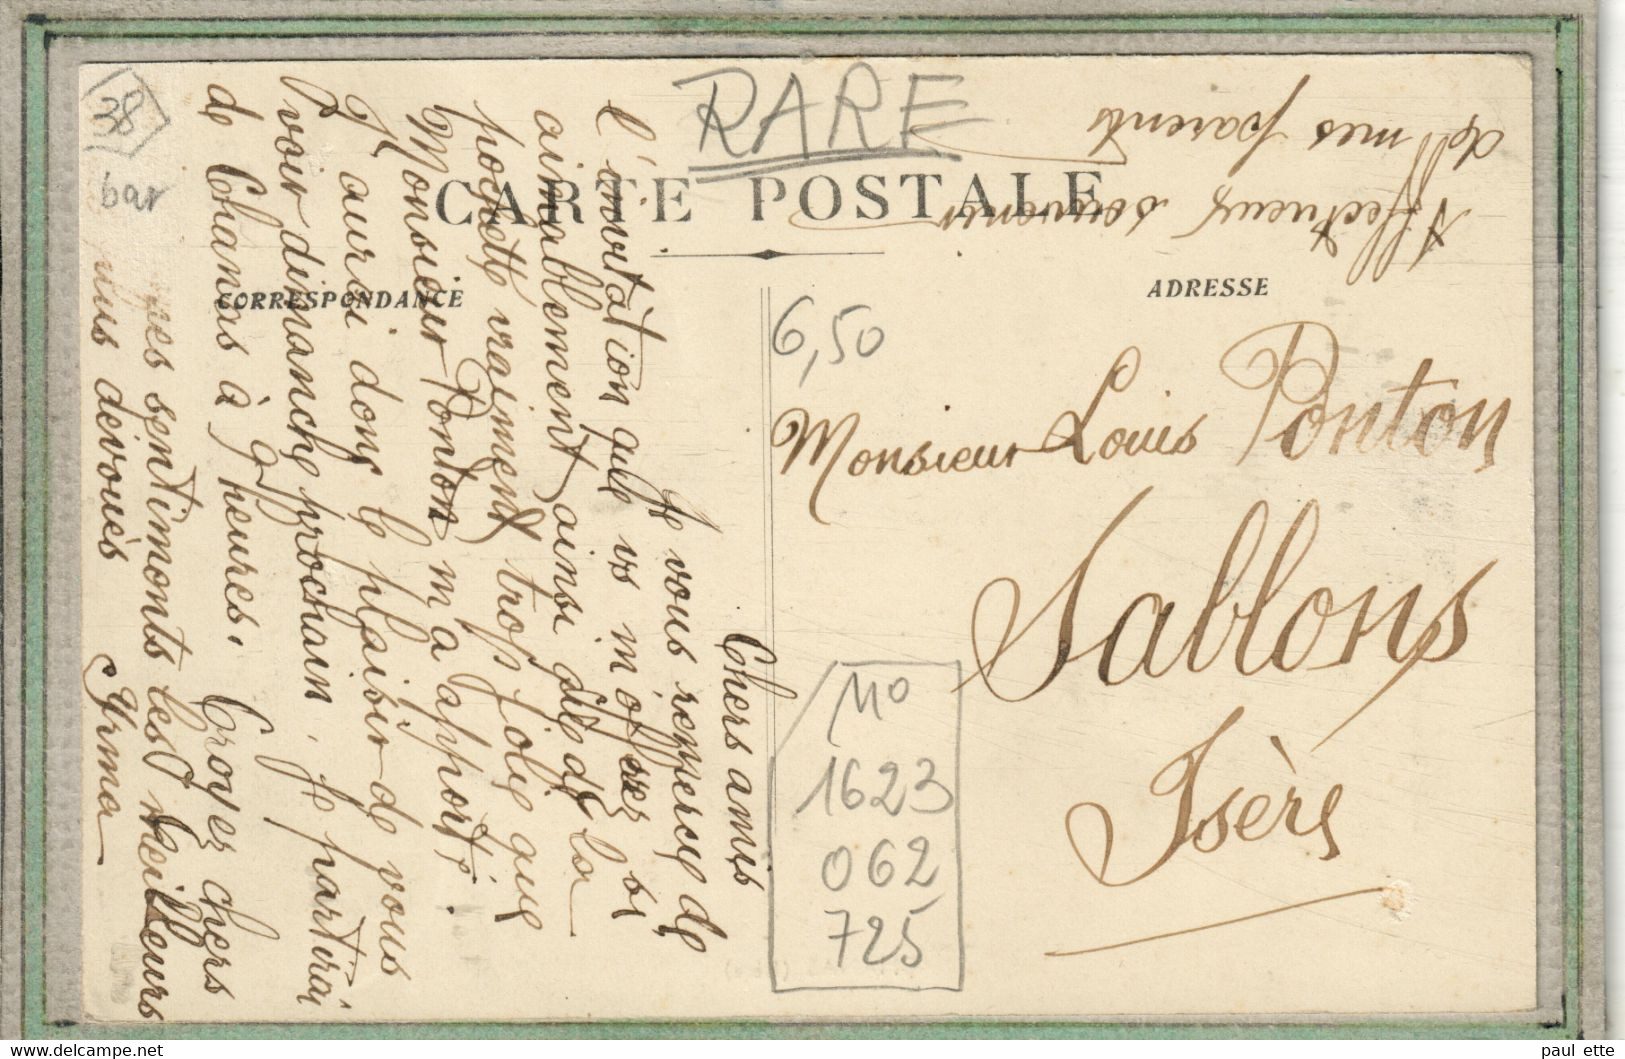 RARE
CARTE POSTALE
CORRESPONDANCE
ADRESSE
38
bar
6,50
Monsieur Louis Ponton
Sablons
Isère
110
1623
062
725
Chers amis
Je vous remercie de
l'invitation que vs m'offrez si
aimablement ainsi que de la
pochette vraiment trop jolie que
Monsieur Ponton m'a apporté.
J'aurai donc le plaisir de vous
voir dimanche prochain. Je partirai
de Chanas à 9 heures. Croyez chers
sentiments les meilleurs
dévoués
Irma
Affectueux souvenir
de mes parents
paul ette
delcampe.net